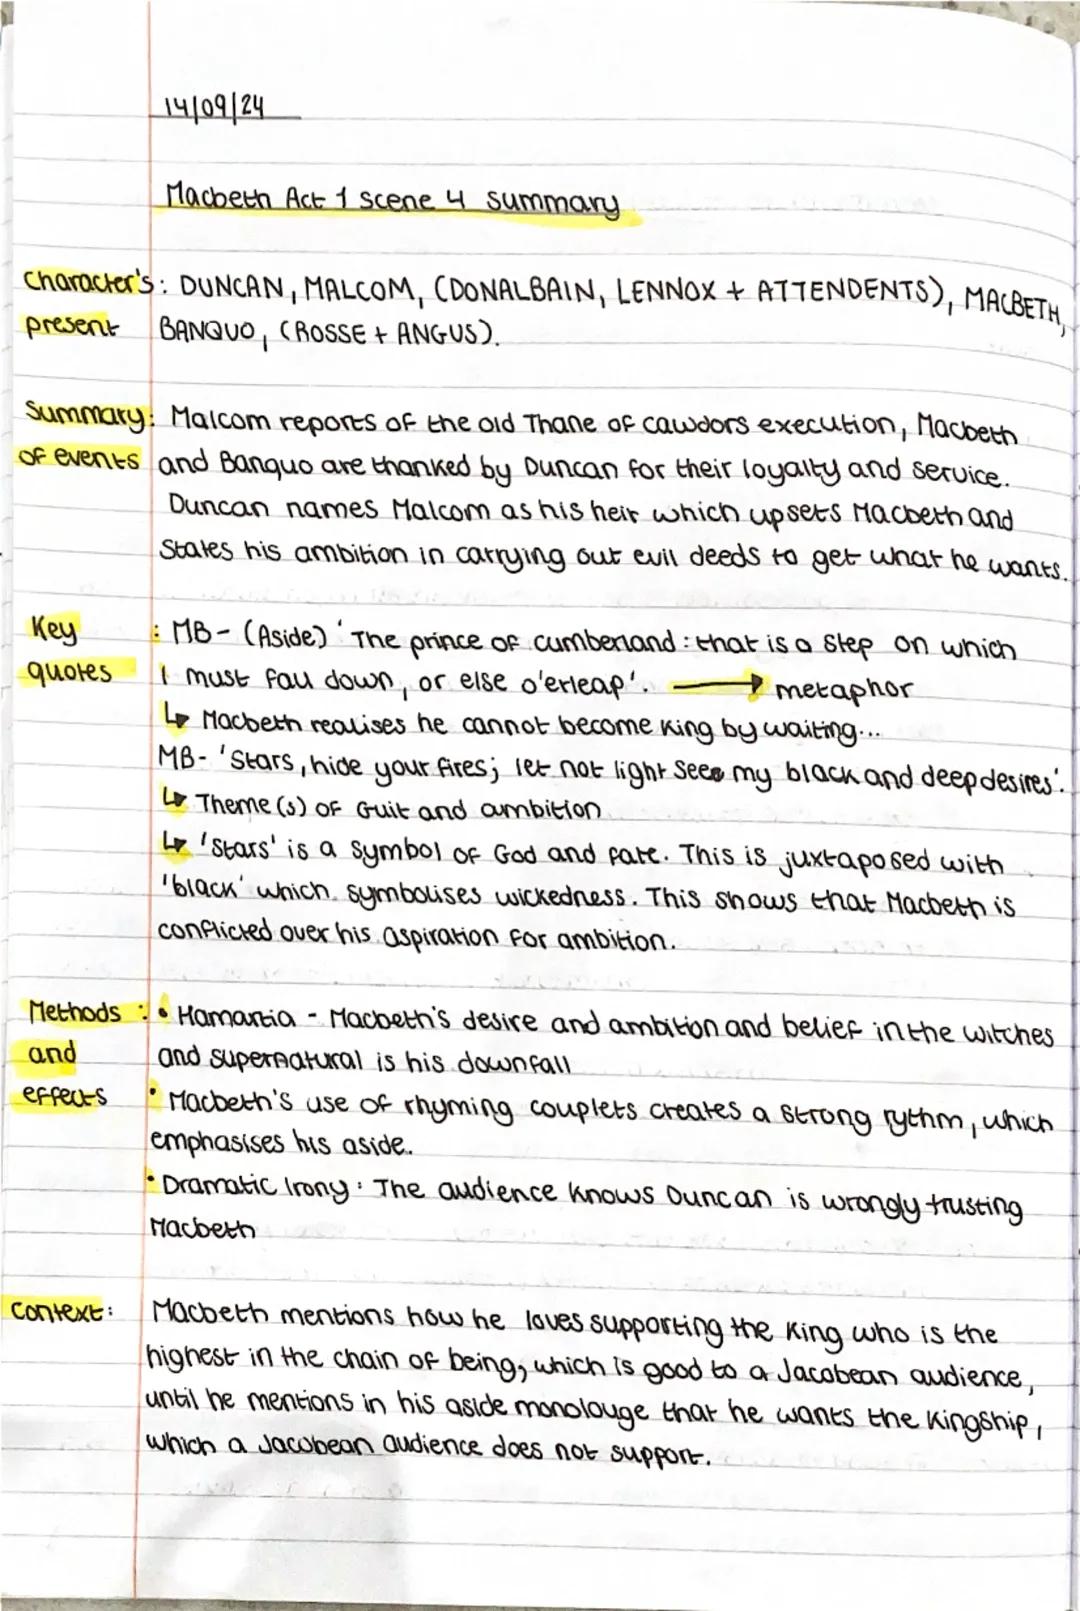 14/09/24
Macbeth Act 1 scene 4 summary
Character's: DUNCAN, MALCOM, (DONALBAIN, LENNOX + ATTENDENTS), MACBETH,
present BANQUO, (ROSSE + ANGUS).
Summary: Malcom reports of the old Thane of cawdors execution, Macbeth
of events and Banquo are thanked by Duncan for their loyalty and service.
Duncan names Malcom as his heir which upsets Macbeth and
States his ambition in carrying out evil deeds to get what he wants.
Key : MB - (Aside) 'The prince of cumberland : that is a step on which
quotes I must fall down, or else o'erleap'. → metaphor
↳ Macbeth realises he cannot become King by waiting...
MB - 'Stars, hide your fires; let not light see my black and deep desires'.
↳ Theme(s) of Guilt and ambition
↳ 'Stars' is a symbol of God and fate. This is juxtaposed with
'black' which symbolises wickedness. This shows that Macbeth is
conflicted over his aspiration for ambition.
Methods : • Hamartia - Macbeth's desire and ambition and belief in the witches
and and supernatural is his downfall
effects • Macbeth's use of rhyming couplets creates a strong rythm, which
emphasises his aside.
• Dramatic Irony : The audience knows Duncan is wrongly trusting
Macbeth
Context: Macbeth mentions how he loves supporting the King who is the
highest in the chain of being, which is good to a Jacobean audience,
until he mentions in his aside monolouge that he wants the Kingship,
which a Jacobean audience does not support.